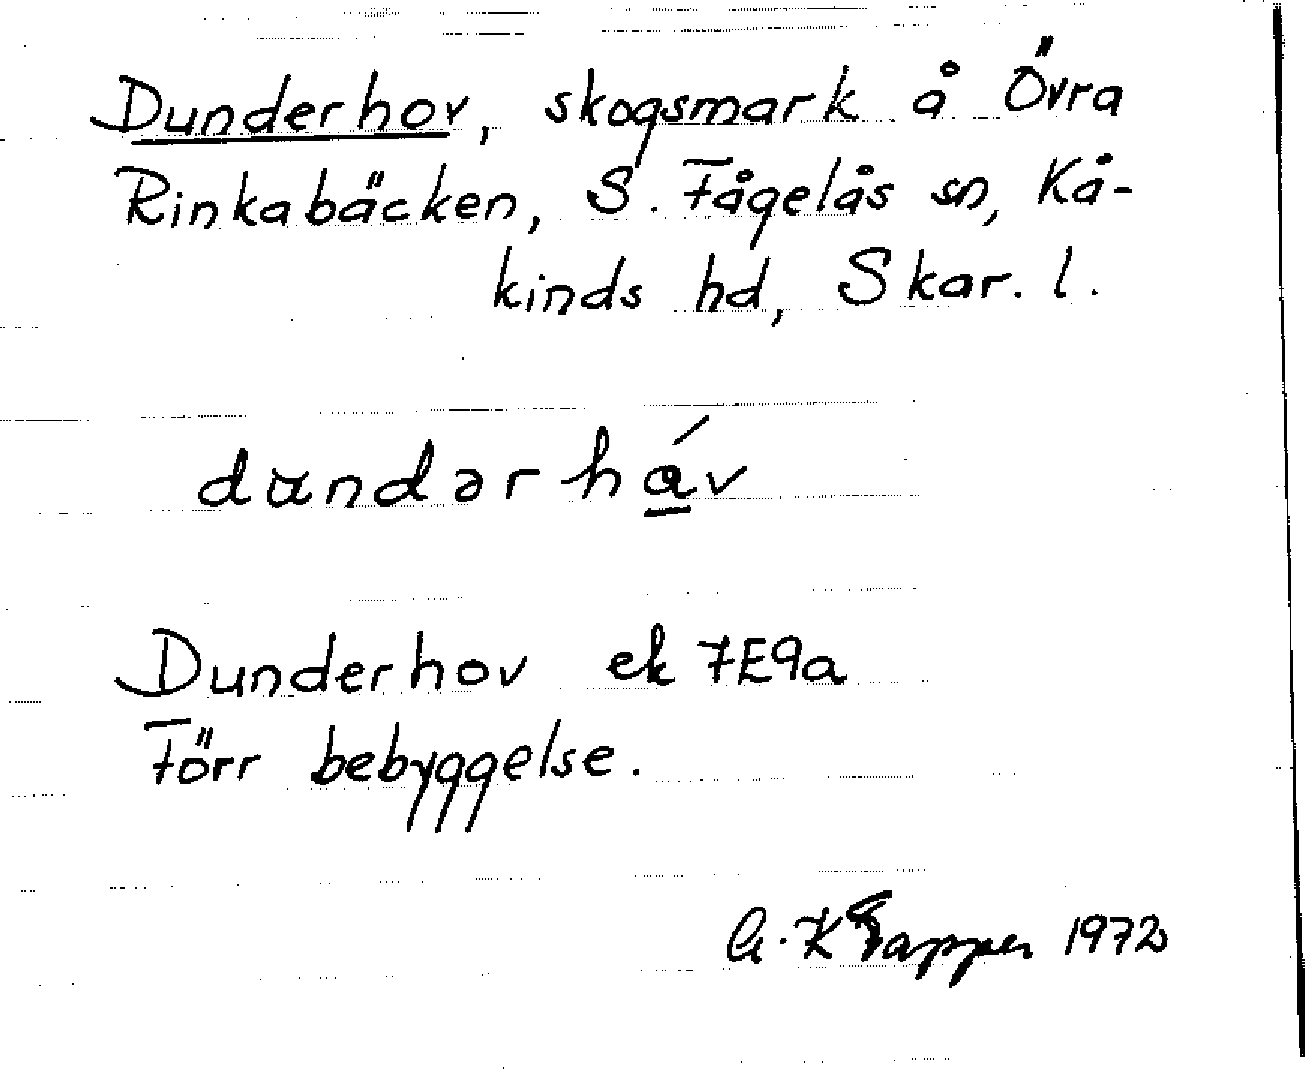 Dunderhov, skogsmark å Övra
Rinkabäcken, S. Fågelås sn, Kå-
kinds hd, Skar. l.
dundərhá̱v
Dunderhov ek 7E9a
Förr bebyggelse.
A. K Tapper 1972